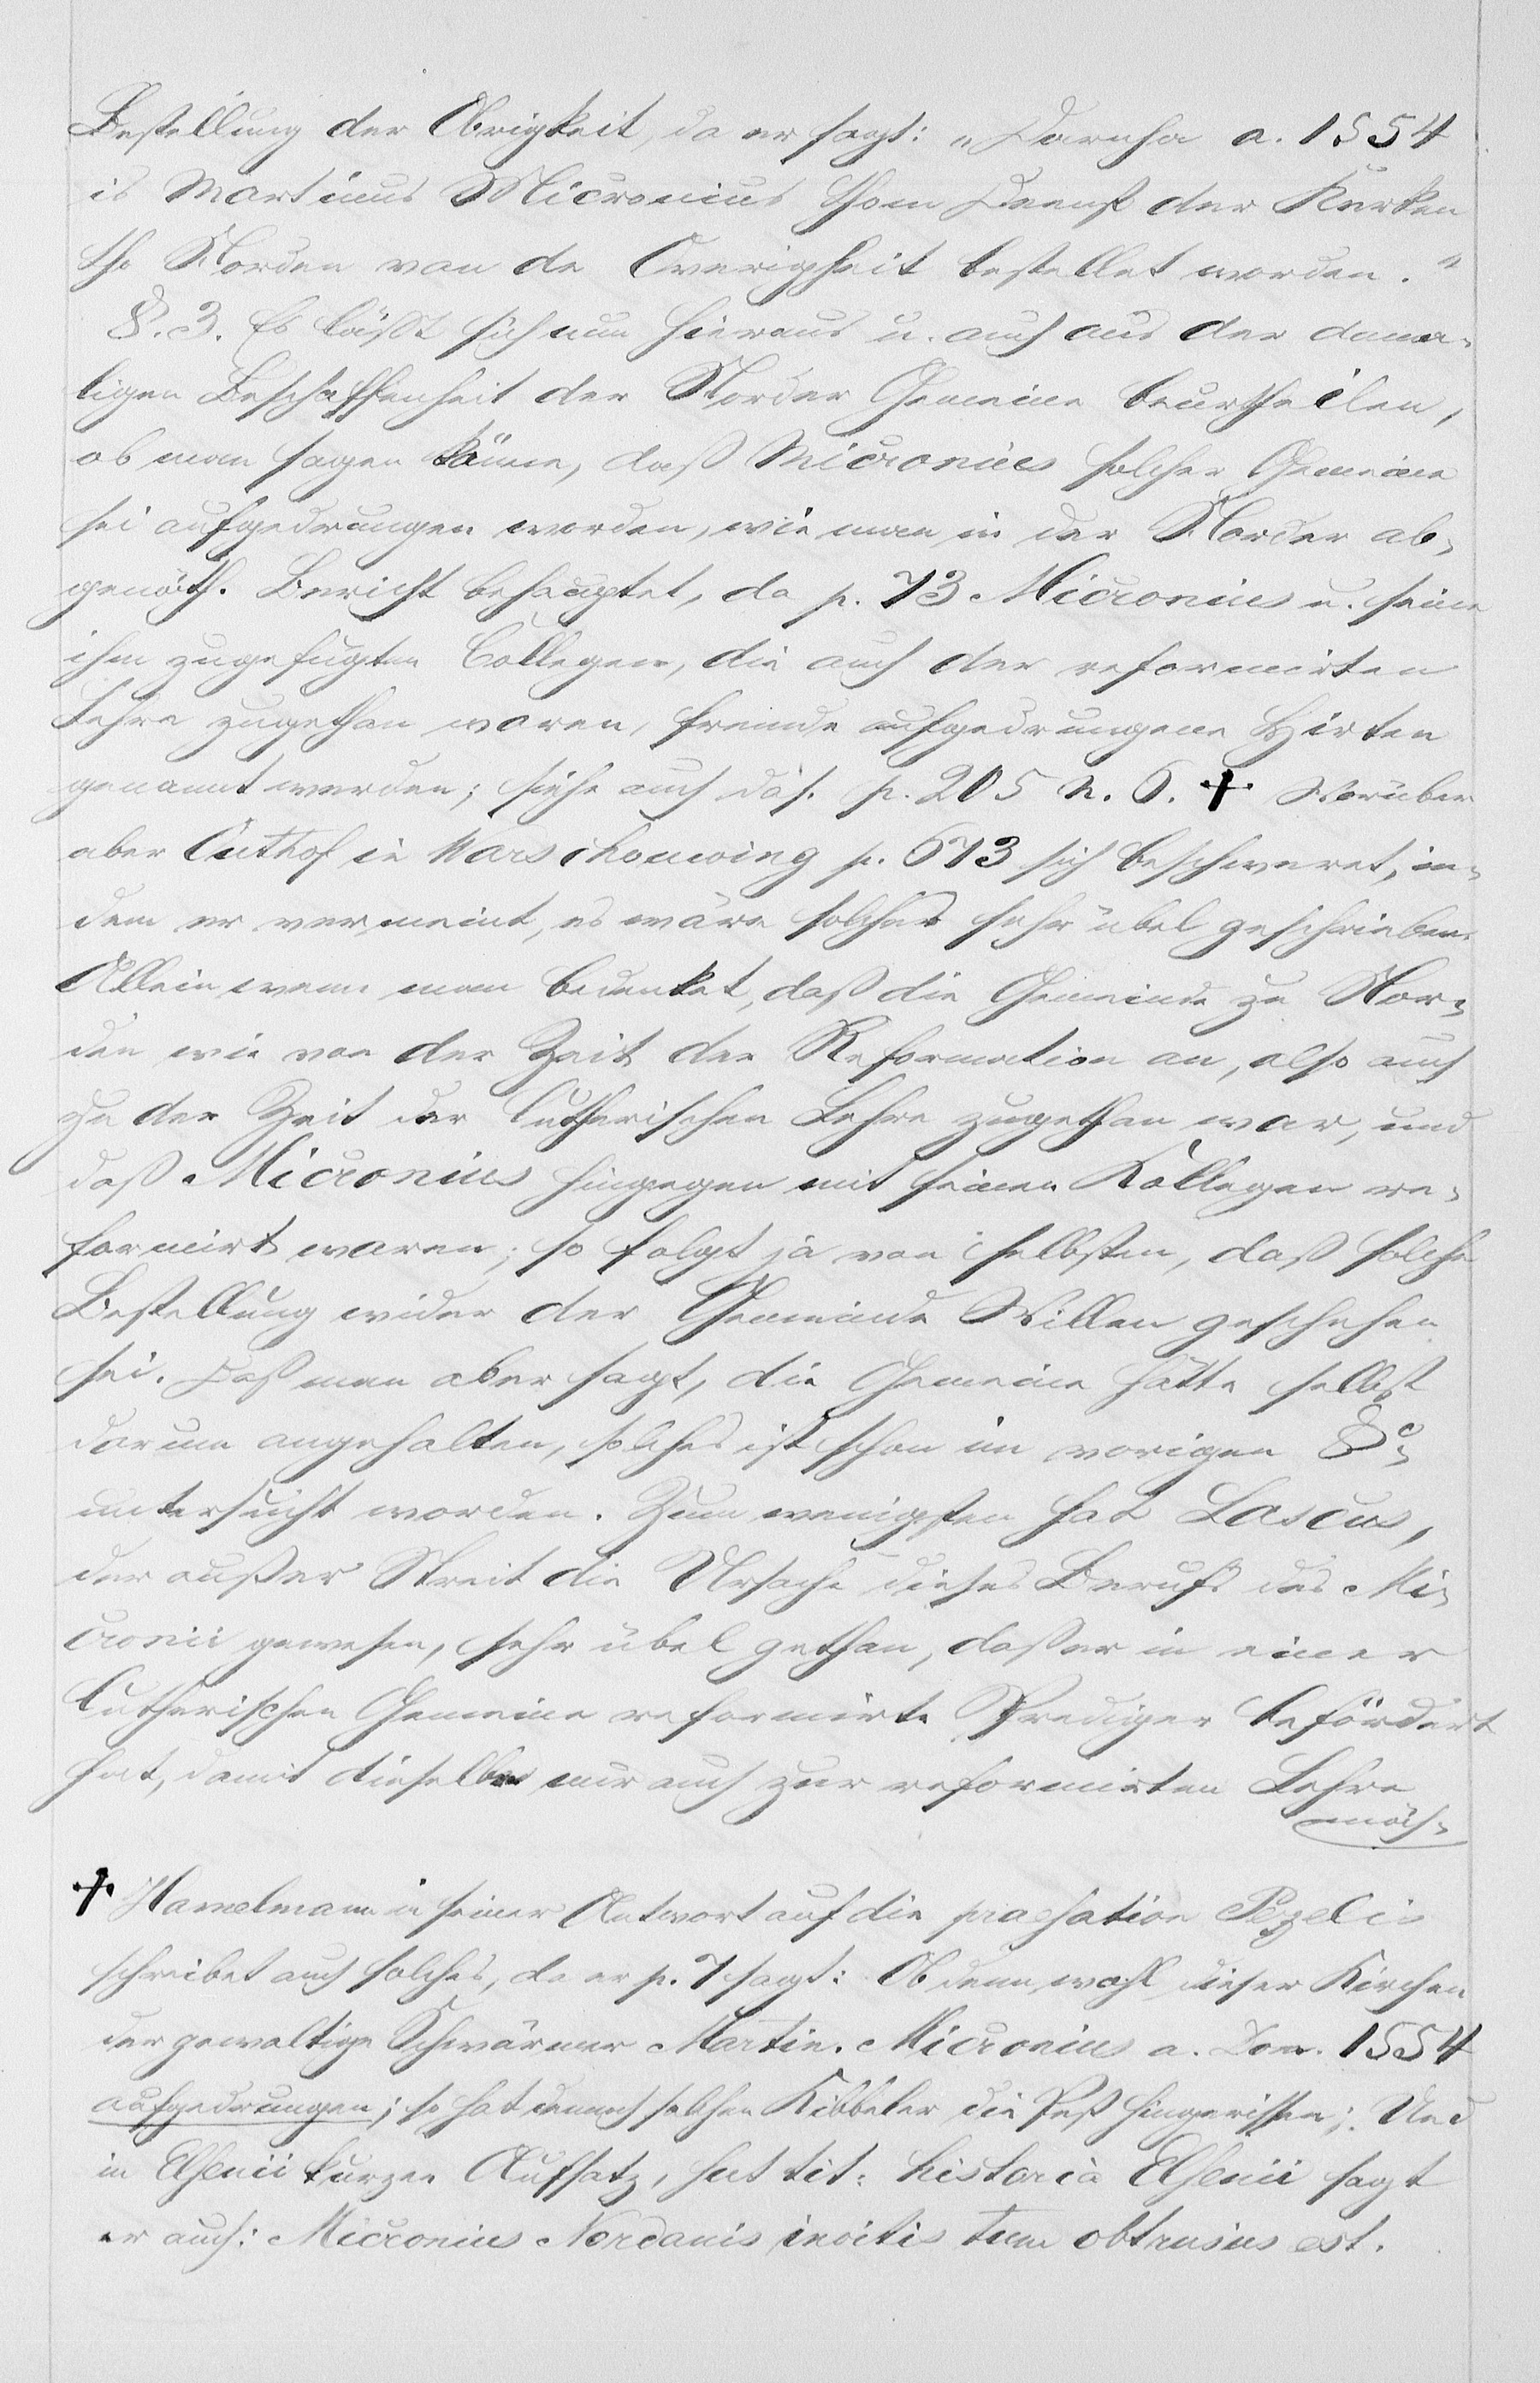 Bestellung der Obrigkeit, da er sagt: „Darnha a. 1554
is Martinus Micronius thom Deenst der Kerken
tho Norden van de Overigheit bestellet worden."
§. 3. Es läßt sich nun hieraus u. auch aus der dama-
ligen Beschaffenheit der Norder Gemeine beurtheilen,
ob man sagen könne, daß Micronius solcher Gemeine
sei aufgedrungen worden, wie man in der Norder ab-
genöth. Bericht behauptet, da p. 73 Micronius u. seine
ihm zugefügten Collegen, die auch der reformirten
Lehre zugethan waren, fremde aufgedrungene Hirten
genannt werden; siehe auch das. p. 205 n. 6. ✝ Worüber
aber Outhof in Warschouwing p. 673 sich beschweret, in-
dem er vermeint, es wäre solches sehr übel geschrieben.
Allein wenn man bedenket, daß die Gemeinde zu Nor-
den wie von der Zeit der Reformation an, also auch
zu der Zeit der lutherischen Lehre zugethan war, und
daß Micronius hingegen mit seinen Kollegen re-
formirt waren; so folgt ja von selbsten, daß solche
Bestellung wider der Gemeinde Willen geschehen
sei. Daß man aber sagt, die Gemeine hätte selbst
darum angehalten, solches ist schon im vorigen §
untersucht worden. Zum wenigsten hat Lascus,
der außer Streit die Ursache dieses Berufs des Mi-
cronii gewesen, sehr übel gethan, daß er in einer
lutherischen Gemeine reformirte Prediger befördert
hat, damit dieselbe nur auch zur reformirten Lehre
möch-
✝ Hamelmann in seiner Antwort auf die praefation Pezelii
schreibet auch solches, da er p. 7 sagt: Ob denn wohl dieser Kirchen
der gewaltige Schwärmer Martin. Micronius a. Dom. 1554
aufgedrungen; so hat dennoch solchen Kibbeler die Pest hingerissen; Und
in Elsenii kurzen Aufsatz, sub tit: historia Elsenii sagt
er auch: Micronius Nordanis invitis tum obtrusus est.